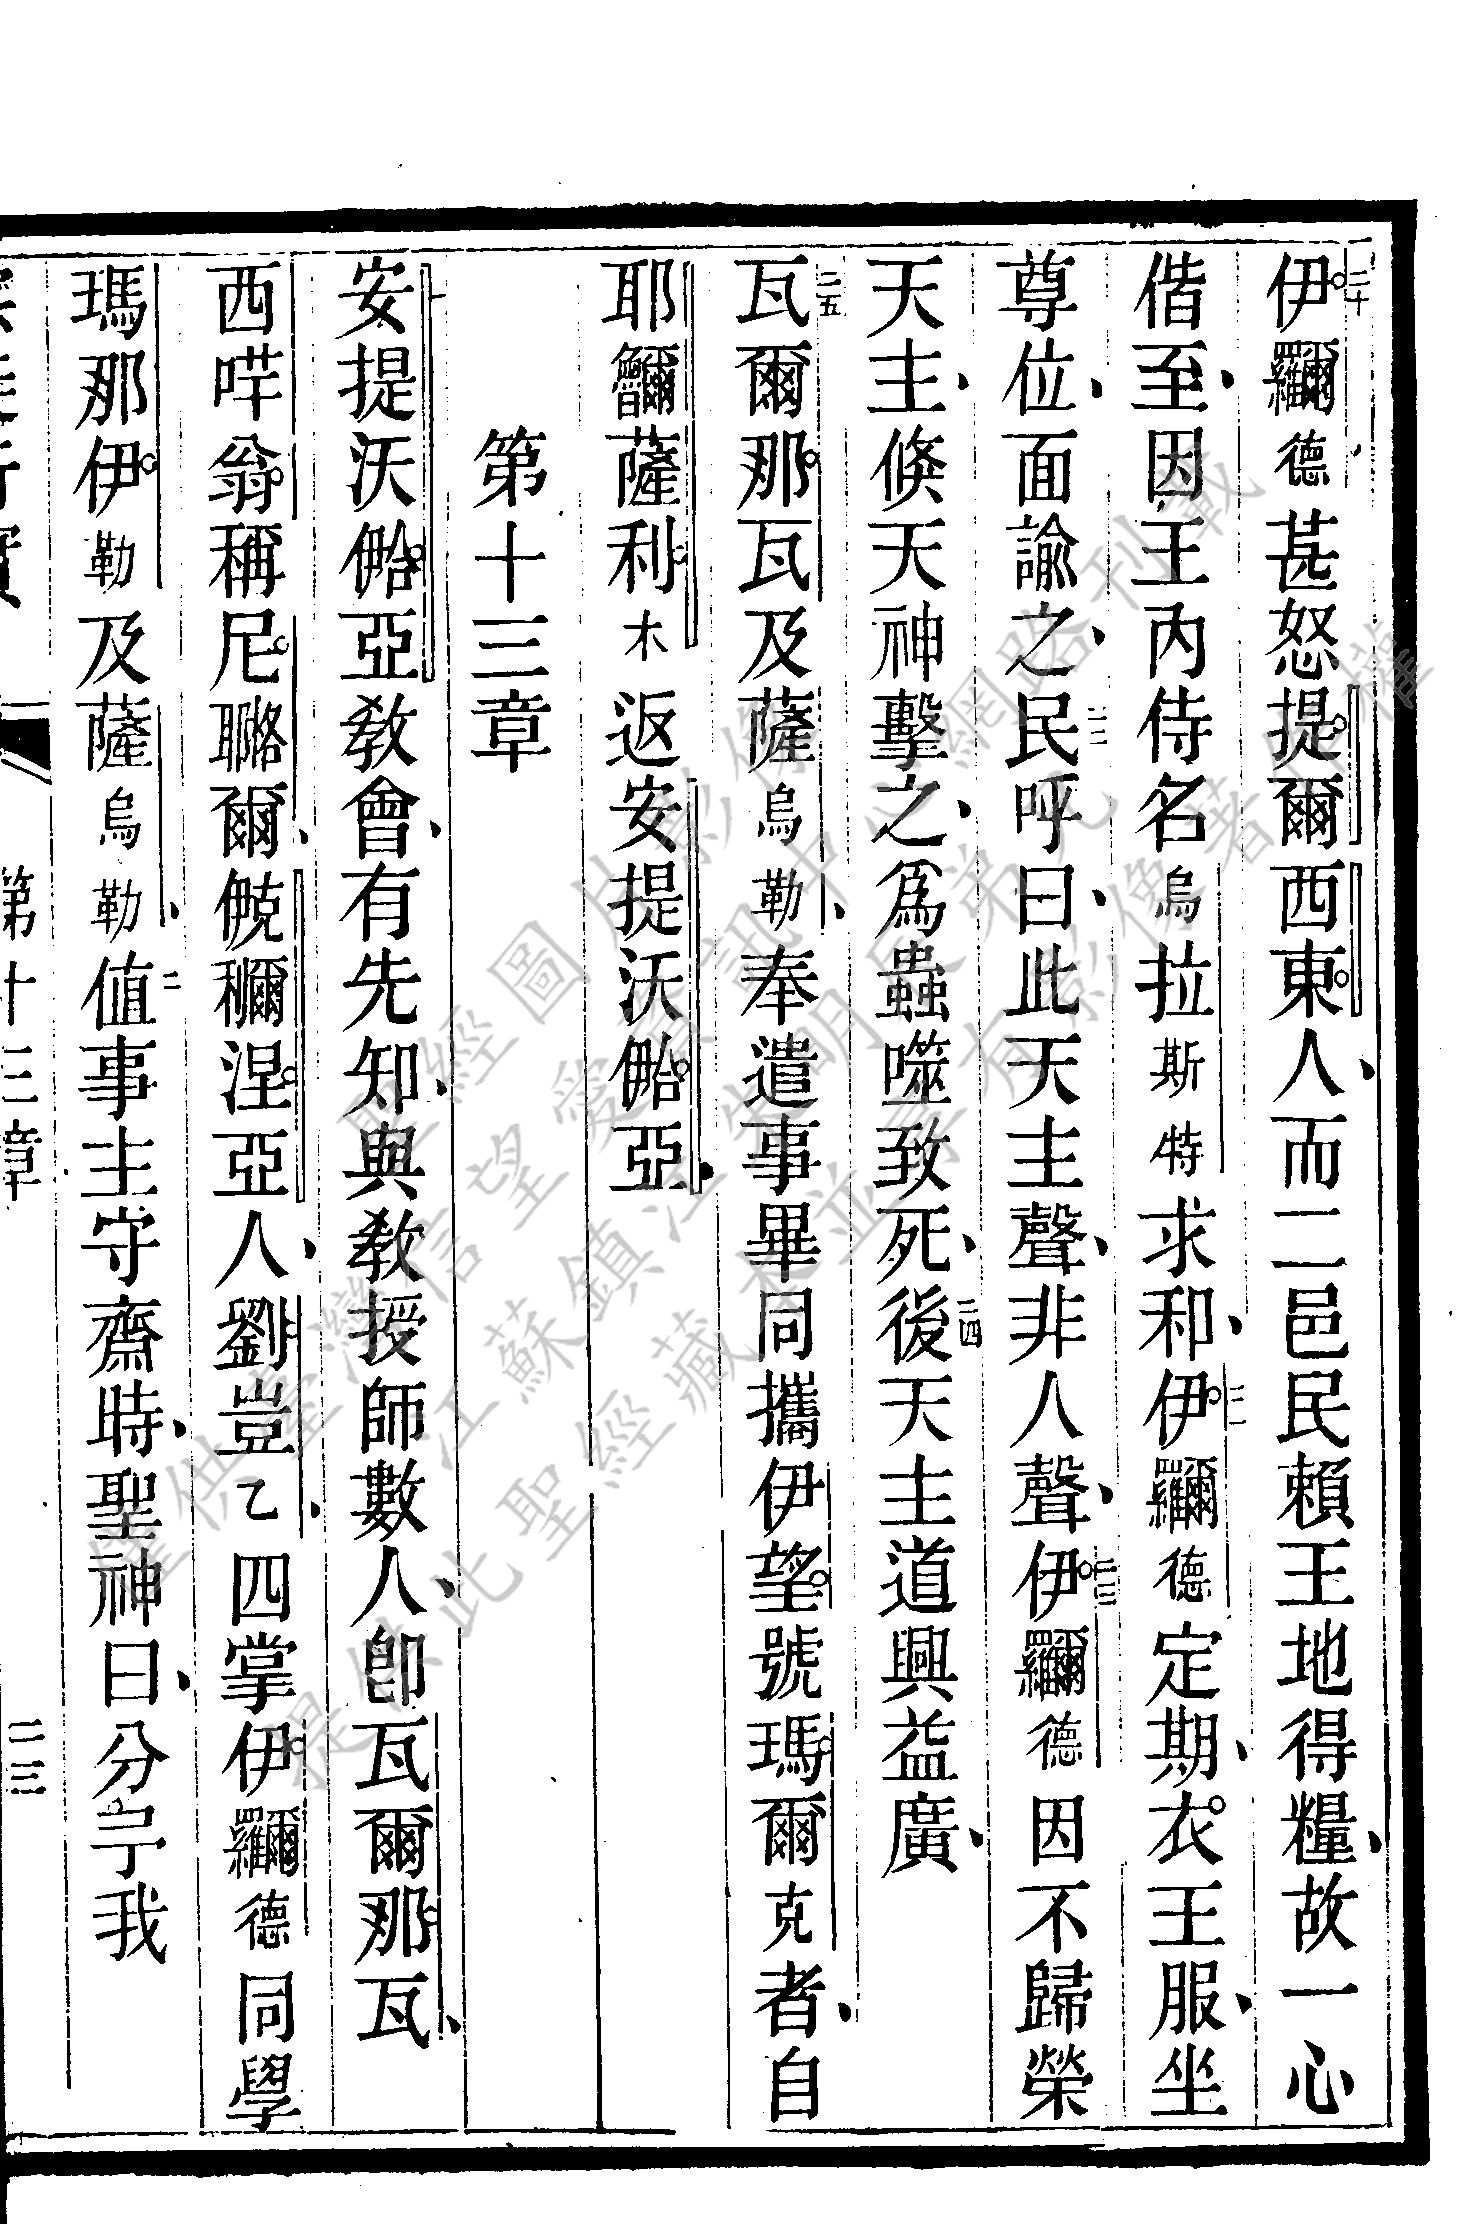 二十伊德甚怒提爾西東人、而二邑民賴王地得糧、故一心
偕至、因王內侍名烏拉斯特求和、二一伊德定期、衣王服、坐
尊位、面諭之、二二民呼曰、此天主聲、非人聲、二三伊德因不歸榮
天主、倐天神擊之、爲蟲噬致死、二四後天主道興益廣、
二五瓦爾那瓦及薩烏勒、奉遣事畢同攜伊望號瑪爾克者、自
耶薩利木返安提沃亞、
第十三章
一安提沃亞教會、有先知、與教授師數人、卽瓦爾那瓦、
西哶翁稱尼爾、涅亞人、劉豈乙、四掌伊德同學
瑪那伊勒及薩烏勒、二値事主守齋時、聖神曰、分予我
第十三章
二三